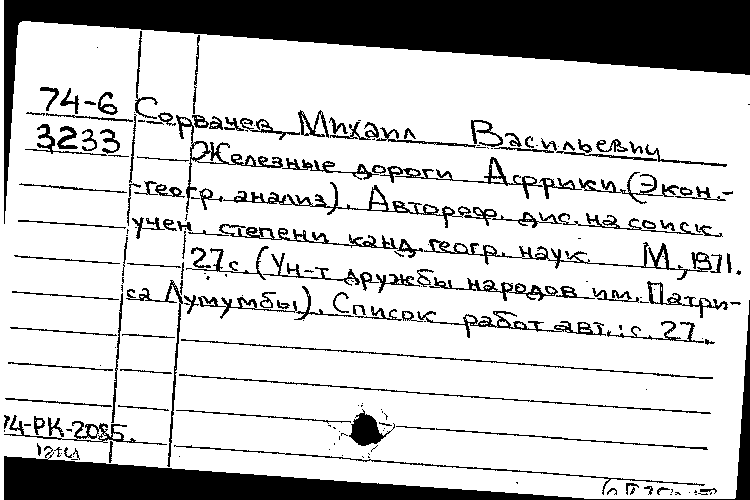 74-6 Сорвачев, Михаил Васильевич
3233 Железные дороги Африки. (Экон.-
-геогр. анализ). Автореф. дис. на соиск.
учен. степени канд. геогр. наук. М., 1971.
27 с. (Ун-т дружбы народов им. Патри-
са Лумумбы). Список работ авт.: с. 27.
74-РК-2085.